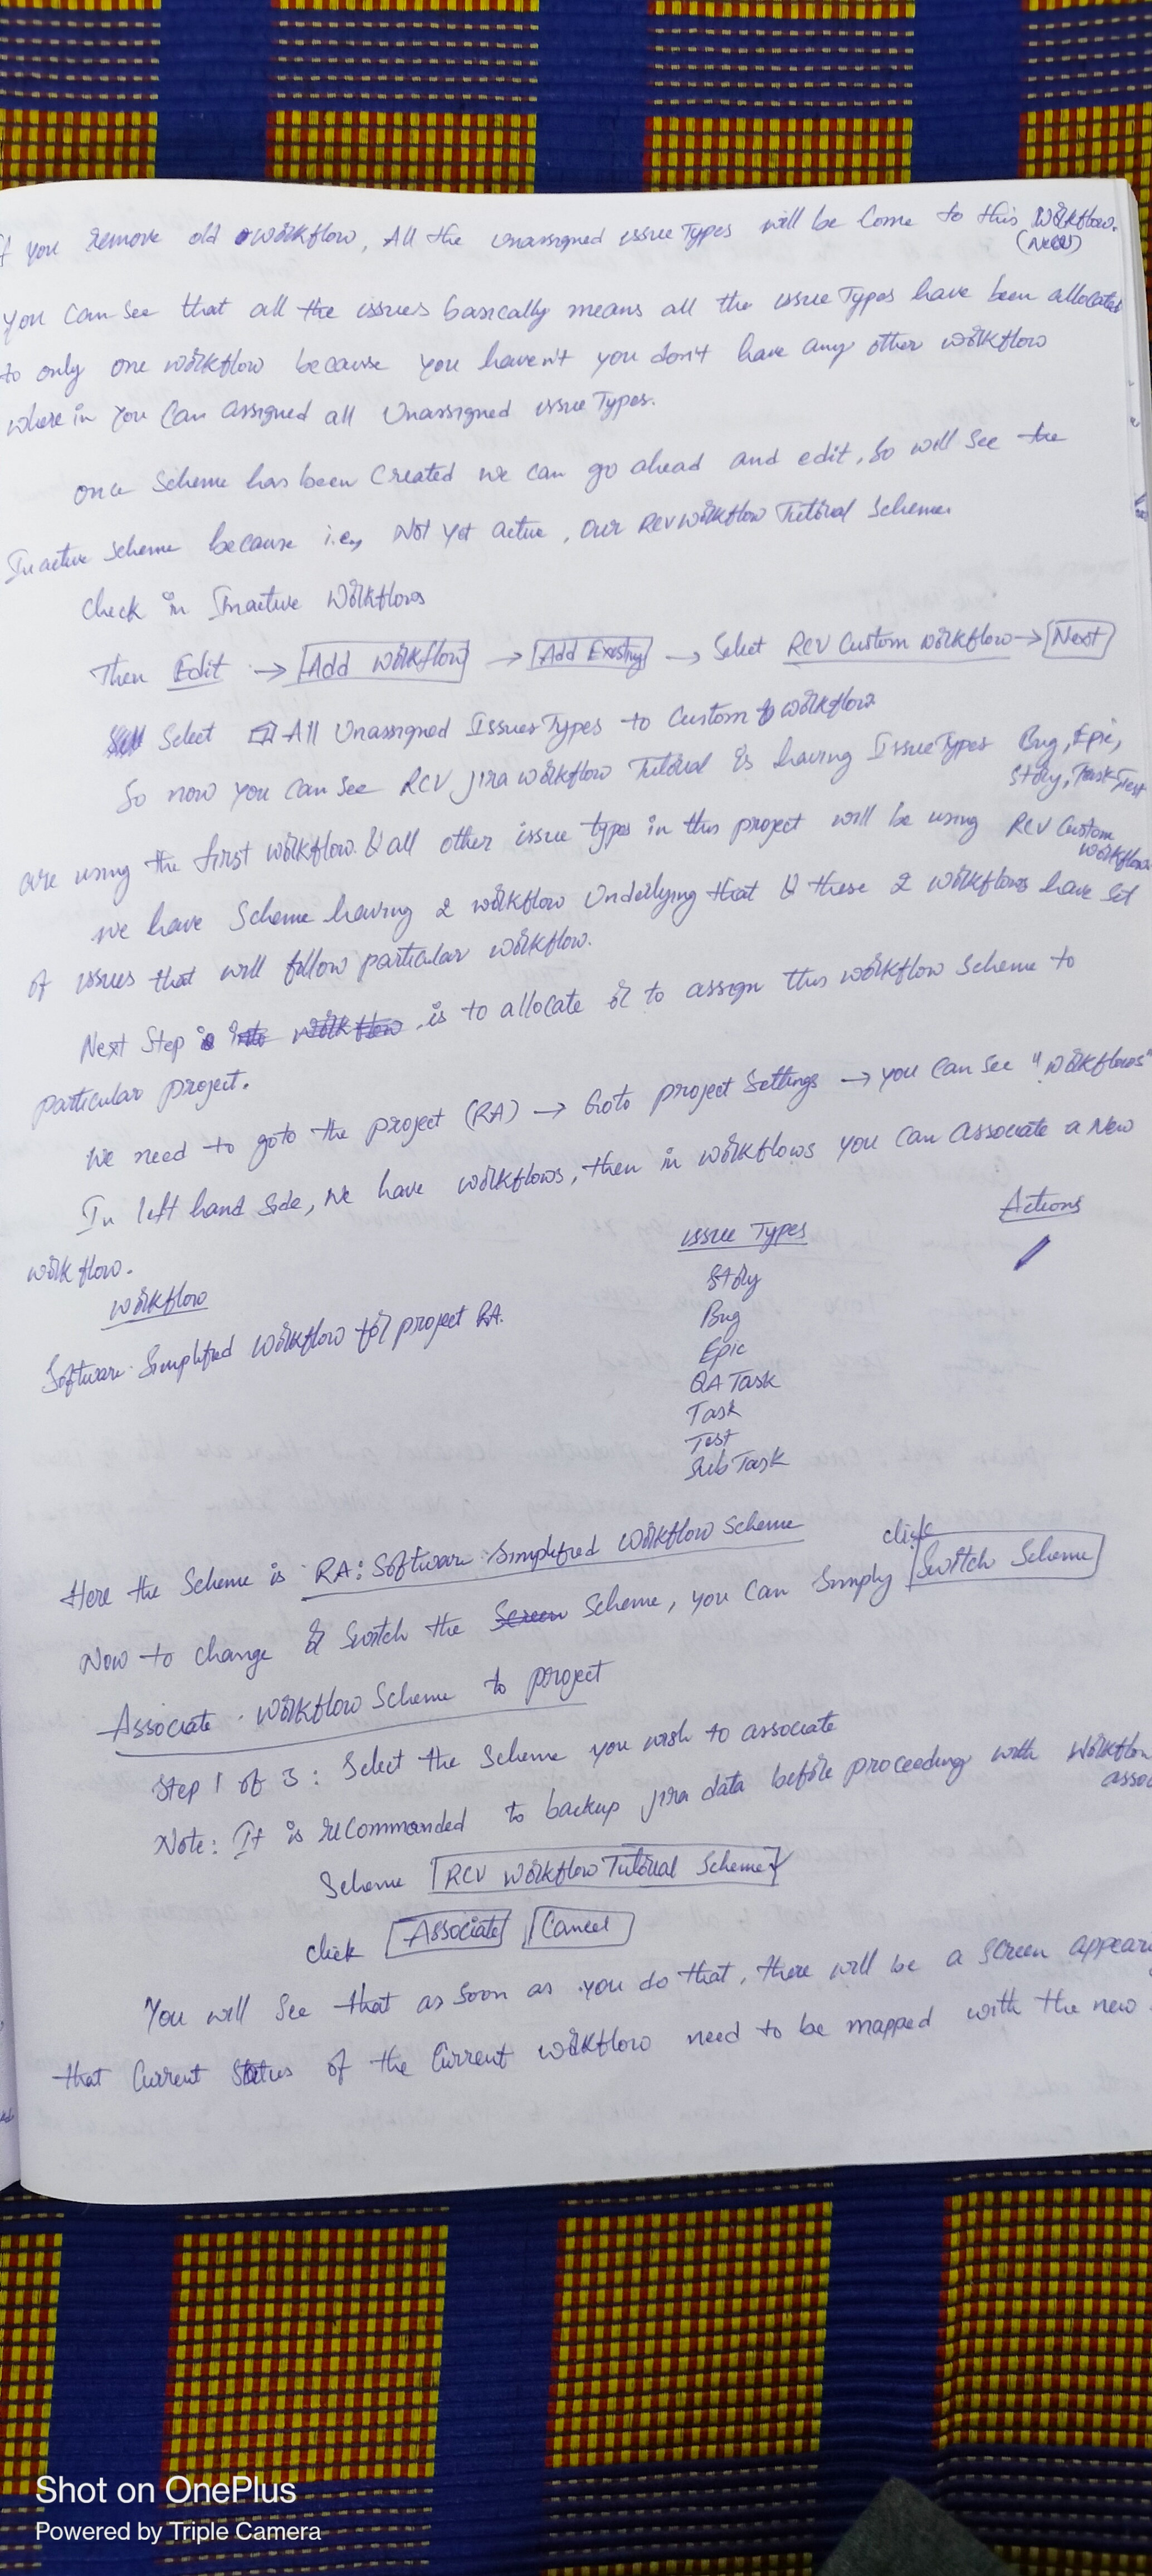 If you remove old workflow, All the unassigned issueTypes will be Come to this Workflow.
(New)
you can see that all the issues basically means all the issueTypes have been allocated
to only one workflow because you haven't you don't have any other workflow
where in you can assigned all Unassigned issueTypes.
once Scheme has been Created we can go ahead and edit, So will see the
Inactive scheme because i.e, Not yet active, our RCV Workflow Tutorial Scheme.
Check in Inactive Workflows
Then Edit → Add workflow → Add Existing → Select RCV Custom workflow → Next
Select All Unassigned IssuesTypes to Custom workflow
So now you can see RCV jira workflow Tutorial is having IssueTypes Bug, Epic,
Story, Task, Test
are using the first workflow. & all other issue types in this project will be using RCV Custom
workflow
we have Scheme having 2 workflow Underlying that & these 2 workflows have set
of issues that will follow particular workflow.
Next Step is to allocate or to assign this workflow scheme to
particular project.
We need to goto the project (RA) → Goto project settings → you can see "workflows"
In left hand side, we have workflows, then in workflows you can associate a New
workflow.
workflow issue Types Actions
Software Simplified Workflow for project RA. Story
Bug
Epic
QA Task
Task
Test
Sub Task
Here the Scheme is RA: Software Simplified Workflow Scheme
click
Now to change & Switch the Screen Scheme, you can simply Switch Scheme
Associate workflow Scheme to project
Step 1 of 3: Select the Scheme you wish to associate
Note: It is recommended to backup jira data before proceeding with Workflow
Scheme RCV Workflow Tutorial Scheme
click Associate Cancel
You will see that as soon as you do that, there will be a screen
that Current Status of the Current workflow need to be mapped with the new
Shot on OnePlus
Powered by Triple Camera